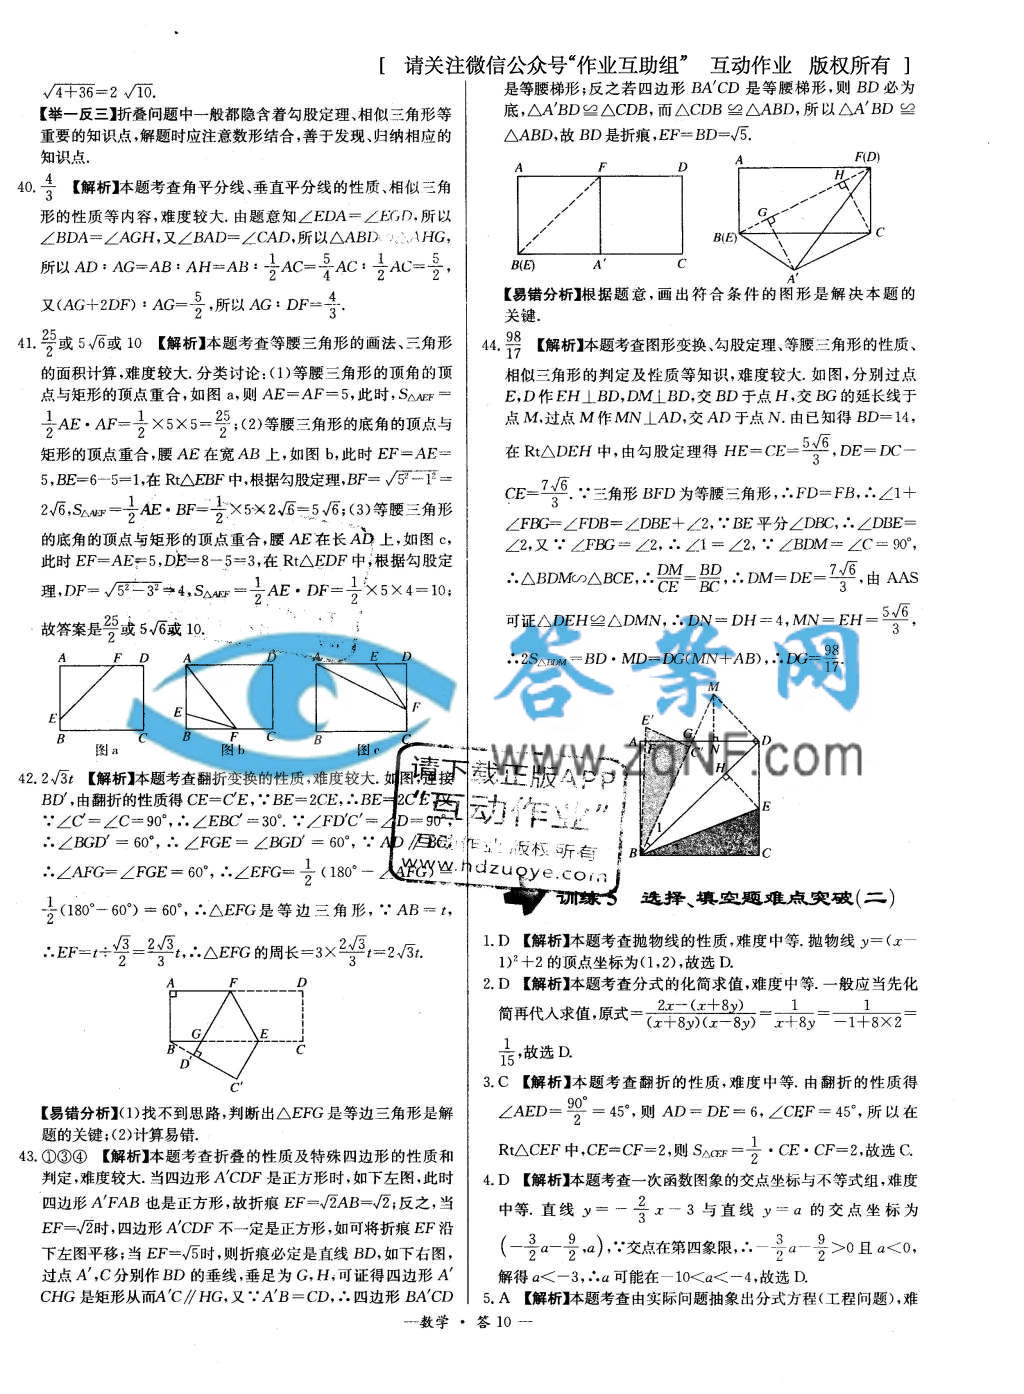 [ 请关注微信公众号“作业互助组” 互动作业 版权所有 ]
√4+36=2 √10.
【举一反三】折叠问题中一般都隐含着勾股定理、相似三角形等
重要的知识点,解题时应注意数形结合,善于发现、归纳相应的
知识点.
40. 4/3 【解析】本题考查角平分线、垂直平分线的性质、相似三角
形的性质等内容,难度较大. 由题意知∠EDA=∠EGD,所以
∠BDA=∠AGH,又∠BAD=∠CAD,所以△ABD∽△AHG,
所以 AD∶AG=AB∶AH=AB∶1/2 AC=5/4 AC∶1/2 AC=5/2,
又(AG+2DF)∶AG=5/2,所以 AG∶DF=4/3.
41. 25/2或 5√6或 10 【解析】本题考查等腰三角形的画法、三角形
的面积计算,难度较大. 分类讨论:(1)等腰三角形的顶角的顶
点与矩形的顶点重合,如图 a,则 AE=AF=5,此时,S△AEF=
1/2 AE·AF=1/2×5×5=25/2;(2)等腰三角形的底角的顶点与
矩形的顶点重合,腰 AE 在宽 AB 上,如图 b,此时 EF=AE=
5,BE=6-5=1,在 Rt△EBF 中,根据勾股定理,BF=√5²-1²=
2√6,S△AEF=1/2 AE·BF=1/2×5×2√6=5√6;(3)等腰三角形
的底角的顶点与矩形的顶点重合,腰 AE 在长 AD 上,如图 c,
此时 EF=AE=5,DE=8-5=3,在 Rt△EDF 中,根据勾股定
理,DF=√5²-3²=4,S△AEF=1/2 AE·DF=1/2×5×4=10;
故答案是25/2或 5√6或 10.
A F D
E
B C
图 a
A D
E
B F C
图 b
A E D
F
B C
图 c
42. 2√3t 【解析】本题考查翻折变换的性质,难度较大. 如图,连接
BD′,由翻折的性质得 CE=C′E,∵BE=2CE,∴BE=2C′E,又
∵∠C′=∠C=90°,∴∠EBC′=30°. ∵∠FD′C′=∠D=90°,
∴∠BGD′=60°,∴∠FGE=∠BGD′=60°,∵AD∥BC,
∴∠AFG=∠FGE=60°,∴∠EFG=1/2(180°-∠AFG)=
1/2(180°-60°)=60°,∴△EFG 是等边三角形,∵AB=t,
∴EF=t÷√3/2=2√3/3 t,∴△EFG 的周长=3×2√3/3 t=2√3t.
A F D
G E
B C
D′
C′
【易错分析】(1)找不到思路,判断出△EFG 是等边三角形是解
题的关键;(2)计算易错.
43. ①③④ 【解析】本题考查折叠的性质及特殊四边形的性质和
判定,难度较大. 当四边形 A′CDF 是正方形时,如下左图,此时
四边形 A′FAB 也是正方形,故折痕 EF=√2AB=√2;反之,当
EF=√2时,四边形 A′CDF 不一定是正方形,如可将折痕 EF 沿
下左图平移;当 EF=√5时,则折痕必定是直线 BD,如下右图,
过点 A′,C 分别作 BD 的垂线,垂足为 G,H,可证得四边形 A′
CHG 是矩形从而A′C∥HG,又∵A′B=CD,∴四边形 BA′CD
是等腰梯形;反之若四边形 BA′CD 是等腰梯形,则 BD 必为
底,△A′BD≌△CDB,而△CDB≌△ABD,所以△A′BD≌
△ABD,故 BD 是折痕,EF=BD=√5.
A F D
B(E) A′ C
A F(D)
H
G
B(E) C
A′
【易错分析】根据题意,画出符合条件的图形是解决本题的
关键.
44. 98/17 【解析】本题考查图形变换、勾股定理、等腰三角形的性质、
相似三角形的判定及性质等知识,难度较大. 如图,分别过点
E,D 作 EH⊥BD,DM⊥BD,交 BD 于点 H,交 BG 的延长线于
点 M,过点 M 作 MN⊥AD,交 AD 于点 N. 由已知得 BD=14,
在 Rt△DEH 中,由勾股定理得 HE=CE=5√6/3,DE=DC-
CE=7√6/3. ∵三角形 BFD 为等腰三角形,∴FD=FB,∴∠1+
∠FBG=∠FDB=∠DBE+∠2,∵BE 平分∠DBC,∴∠DBE=
∠2,又∵∠FBG=∠2,∴∠1=∠2,∵∠BDM=∠C=90°,
∴△BDM∽△BCE,∴DM/CE=BD/BC,∴DM=DE=7√6/3,由 AAS
可证△DEH≌△DMN,∴DN=DH=4,MN=EH=5√6/3,
∴2S△BDM=BD·MD=DG(MN+AB),∴DG=98/17.
M
E′
A F G C′ N D
H
E
1
B C
训练 5 选择、填空题难点突破(二)
1. D 【解析】本题考查抛物线的性质,难度中等. 抛物线 y=(x-
1)²+2 的顶点坐标为(1,2),故选 D.
2. D 【解析】本题考查分式的化简求值,难度中等. 一般应当先化
简再代人求值,原式=2x-(x+8y)/(x+8y)(x-8y)=1/x+8y=1/-1+8×2=
1/15,故选 D.
3. C 【解析】本题考查翻折的性质,难度中等. 由翻折的性质得
∠AED=90°/2=45°,则 AD=DE=6,∠CEF=45°,所以在
Rt△CEF 中,CE=CF=2,则 S△CEF=1/2·CE·CF=2,故选 C.
4. D 【解析】本题考查一次函数图象的交点坐标与不等式组,难度
中等. 直线 y=-2/3 x-3 与直线 y=a 的交点坐标为
(-3/2 a-9/2,a),∵交点在第四象限,∴-3/2 a-9/2>0 且 a<0,
解得 a<-3,∴a 可能在-10<a<-4,故选 D.
5. A 【解析】本题考查由实际问题抽象出分式方程(工程问题),难
—数学·答 10—
答案网
www.zqNF.com
请下载正版APP
“互动作业”
互动作业 版权所有
www.hdzuoye.com